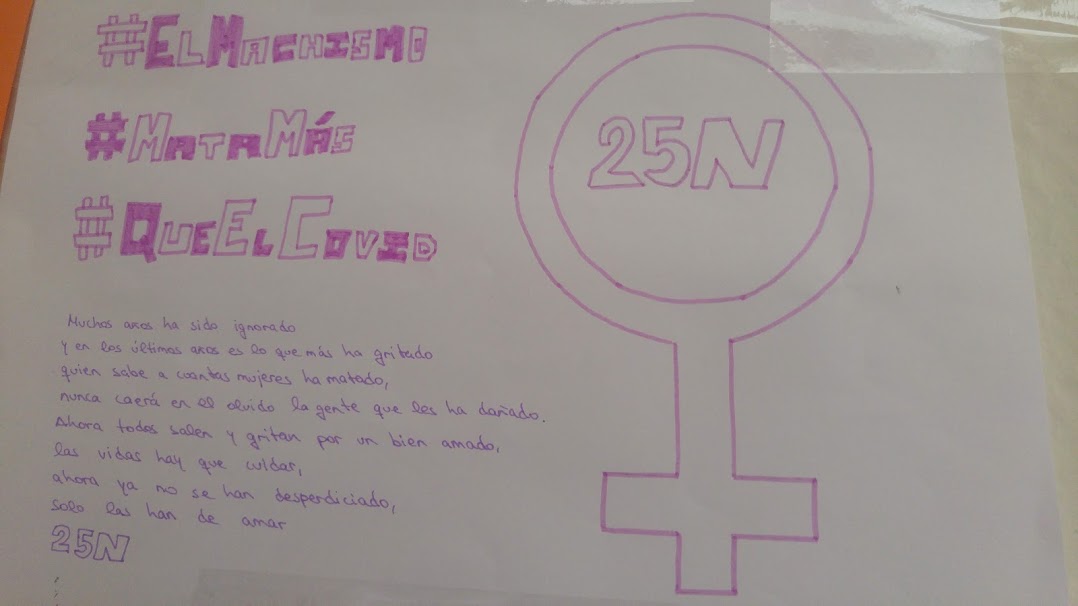 #ElMachismo
#MataMás
#QueElCovid
25N
Muchos años ha sido ignorado
y en los últimos años es lo que más ha gritado
quien sabe a cuantas mujeres ha matado,
nunca caerá en el olvido la gente que les ha dañado.
Ahora todos salen y gritan por un bien amado,
las vidas hay que cuidar,
ahora ya no se han desperdiciado,
solo las han de amar
25N